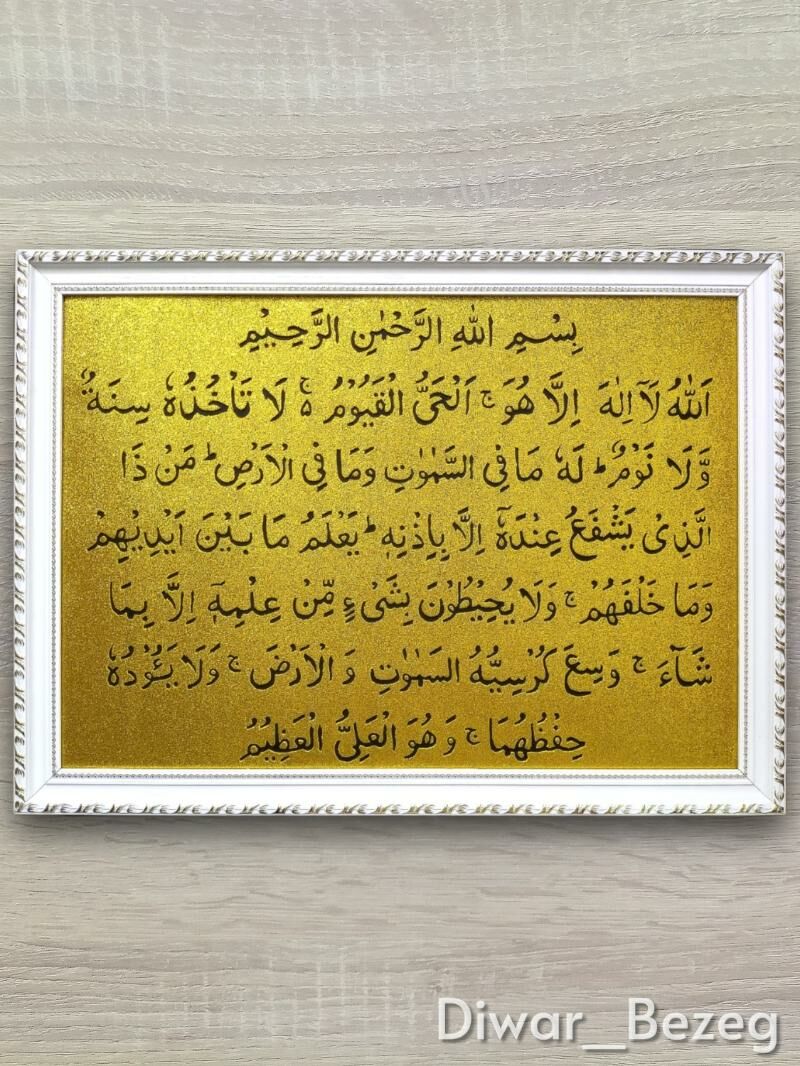 بِسْمِ اللهِ الرَّحْمٰنِ الرَّحِيْمِ
اَللهُ لَآ اِلٰهَ اِلَّا هُوَ ۚ اَلْحَىُّ الْقَيُّوْمُ ۵ ۚ لَا تَاْخُذُهٗ سِنَةٌ
وَّلَا نَوْمٌ ؕ لَهٗ مَا فِى السَّمٰوٰتِ وَمَا فِى الْاَرْضِ ؕ مَنْ ذَا
الَّذِىْ يَشْفَعُ عِنْدَهٗٓ اِلَّا بِاِذْنِهٖ ؕ يَعْلَمُ مَا بَيْنَ اَيْدِيْهِمْ
وَمَا خَلْفَهُمْ ۚ وَلَا يُحِيْطُوْنَ بِشَىْءٍ مِّنْ عِلْمِهٖٓ اِلَّا بِمَا
شَآءَ ۚ وَسِعَ كُرْسِيُّهُ السَّمٰوٰتِ وَ الْاَرْضَ ۚ وَلَا يَـُٔوْدُهٗ
حِفْظُهُمَا ۚ وَ هُوَ الْعَلِىُّ الْعَظِيْمُ
Diwar_Bezeg